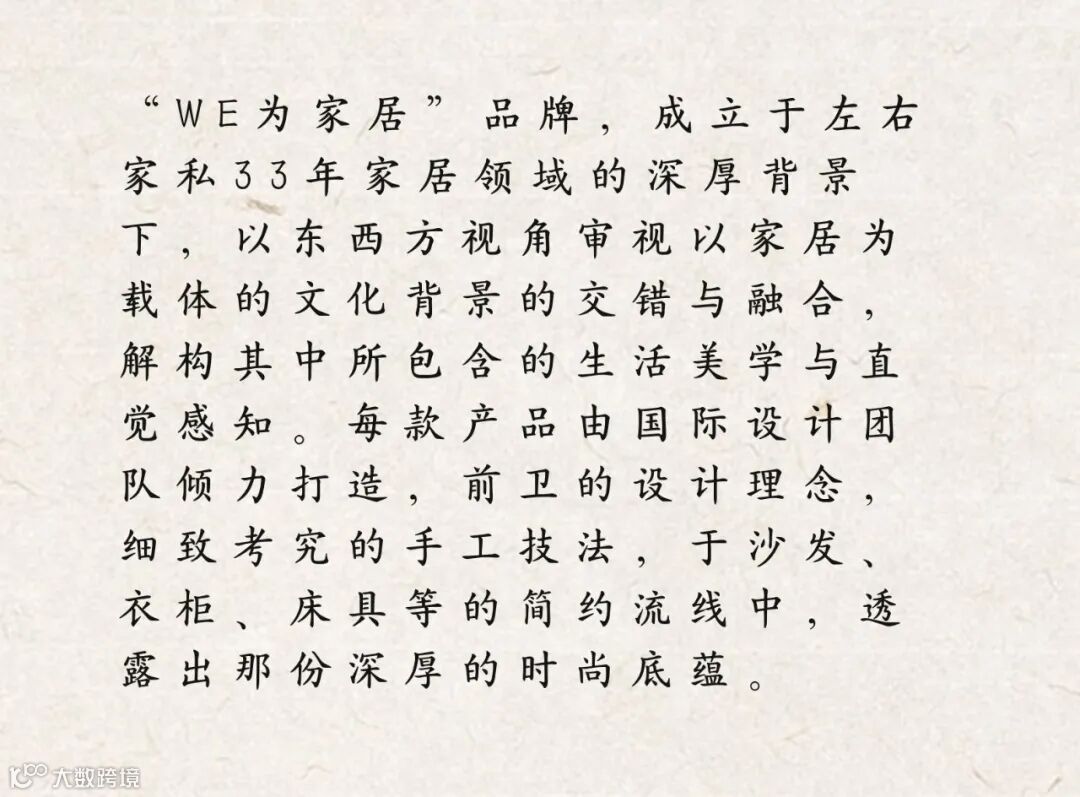 “WE为家居”品牌，成立于左右
家私33年家居领域的深厚背景
下，以东西方视角审视以家居为
载体的文化背景的交错与融合，
解构其中所包含的生活美学与直
觉感知。每款产品由国际设计团
队倾力打造，前卫的设计理念，
细致考究的手工技法，于沙发、
衣柜、床具等的简约流线中，透
露出那份深厚的时尚底蕴。
大数跨境